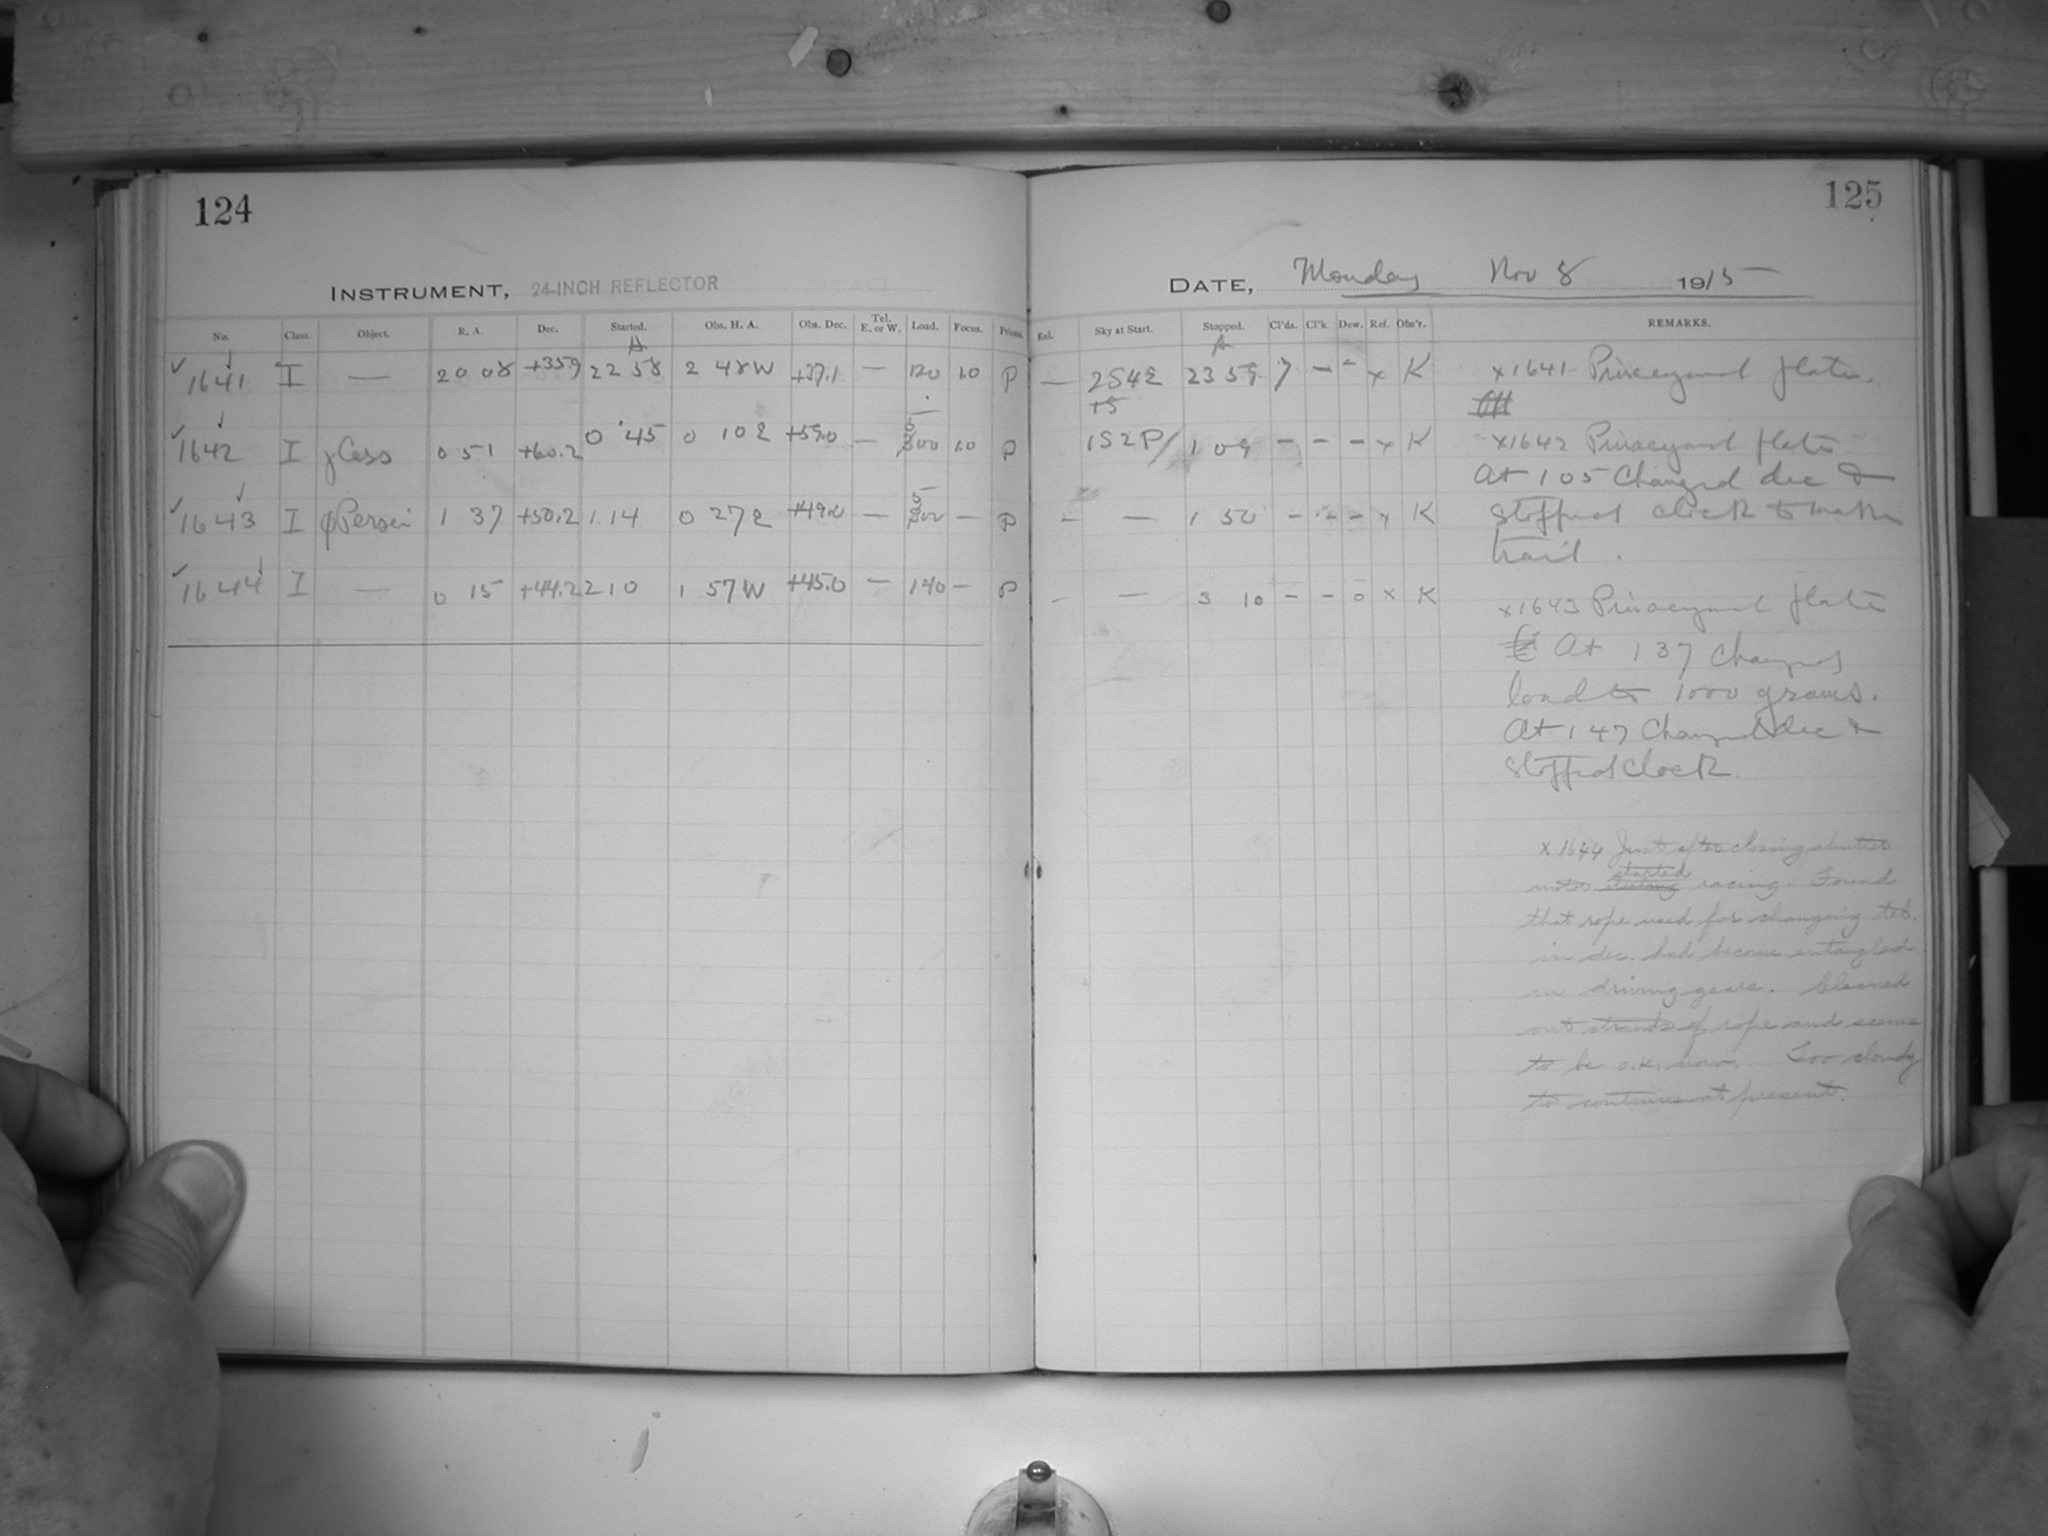 124
INSTRUMENT, 24-INCH REFLECTOR
No. Class. Object. R. A. Dec. Started. Obs. H. A. Obs. Dec. Tel. E. or W. Load. Focus. Prism.
A
✓ 1641 I — 20 08 +35.9 22 58 2 48 W +37.1 — 120 1.0 P
✓ 1642 I γ Cass 0 51 +60.2 0 45 0 10 E +59.0 — 500 1.0 P
✓ 1643 I φ Persei 1 37 +50.2 1 14 0 27 E +49.0 — 500 — P
✓ 1644 I — 0 15 +44.2 2 10 1 57 W +45.0 — 140 — P
125
DATE, Monday Nov 8 1915
Eol. Sky at Start. Stopped. Cl'ds. Cl'k. Dew. Ref. Obs'r. REMARKS.
A
— 2S4E 23 59 7 — – x K
+5
1S2P/ 1 09 – – – x K
– — 1 50 – – – x K
– — 3 10 – – 0 x K
x1641 Pinacyanol plate.
x1642 Pinacyanol plate
At 1 05 Changed dec &
stopped clock to make
trail.
x1643 Pinacyanol plate
At 1 37 Changed
load to 1000 grams.
At 1 47 Changed dec &
stopped clock.
x 1644 Just after closing shutter
started
motor racing. Found
that rope used for changing tel.
in dec. had become entangled
in driving gears. Cleaned
out strands of rope and seems
to be o.k. now. Too cloudy
to continue at present.